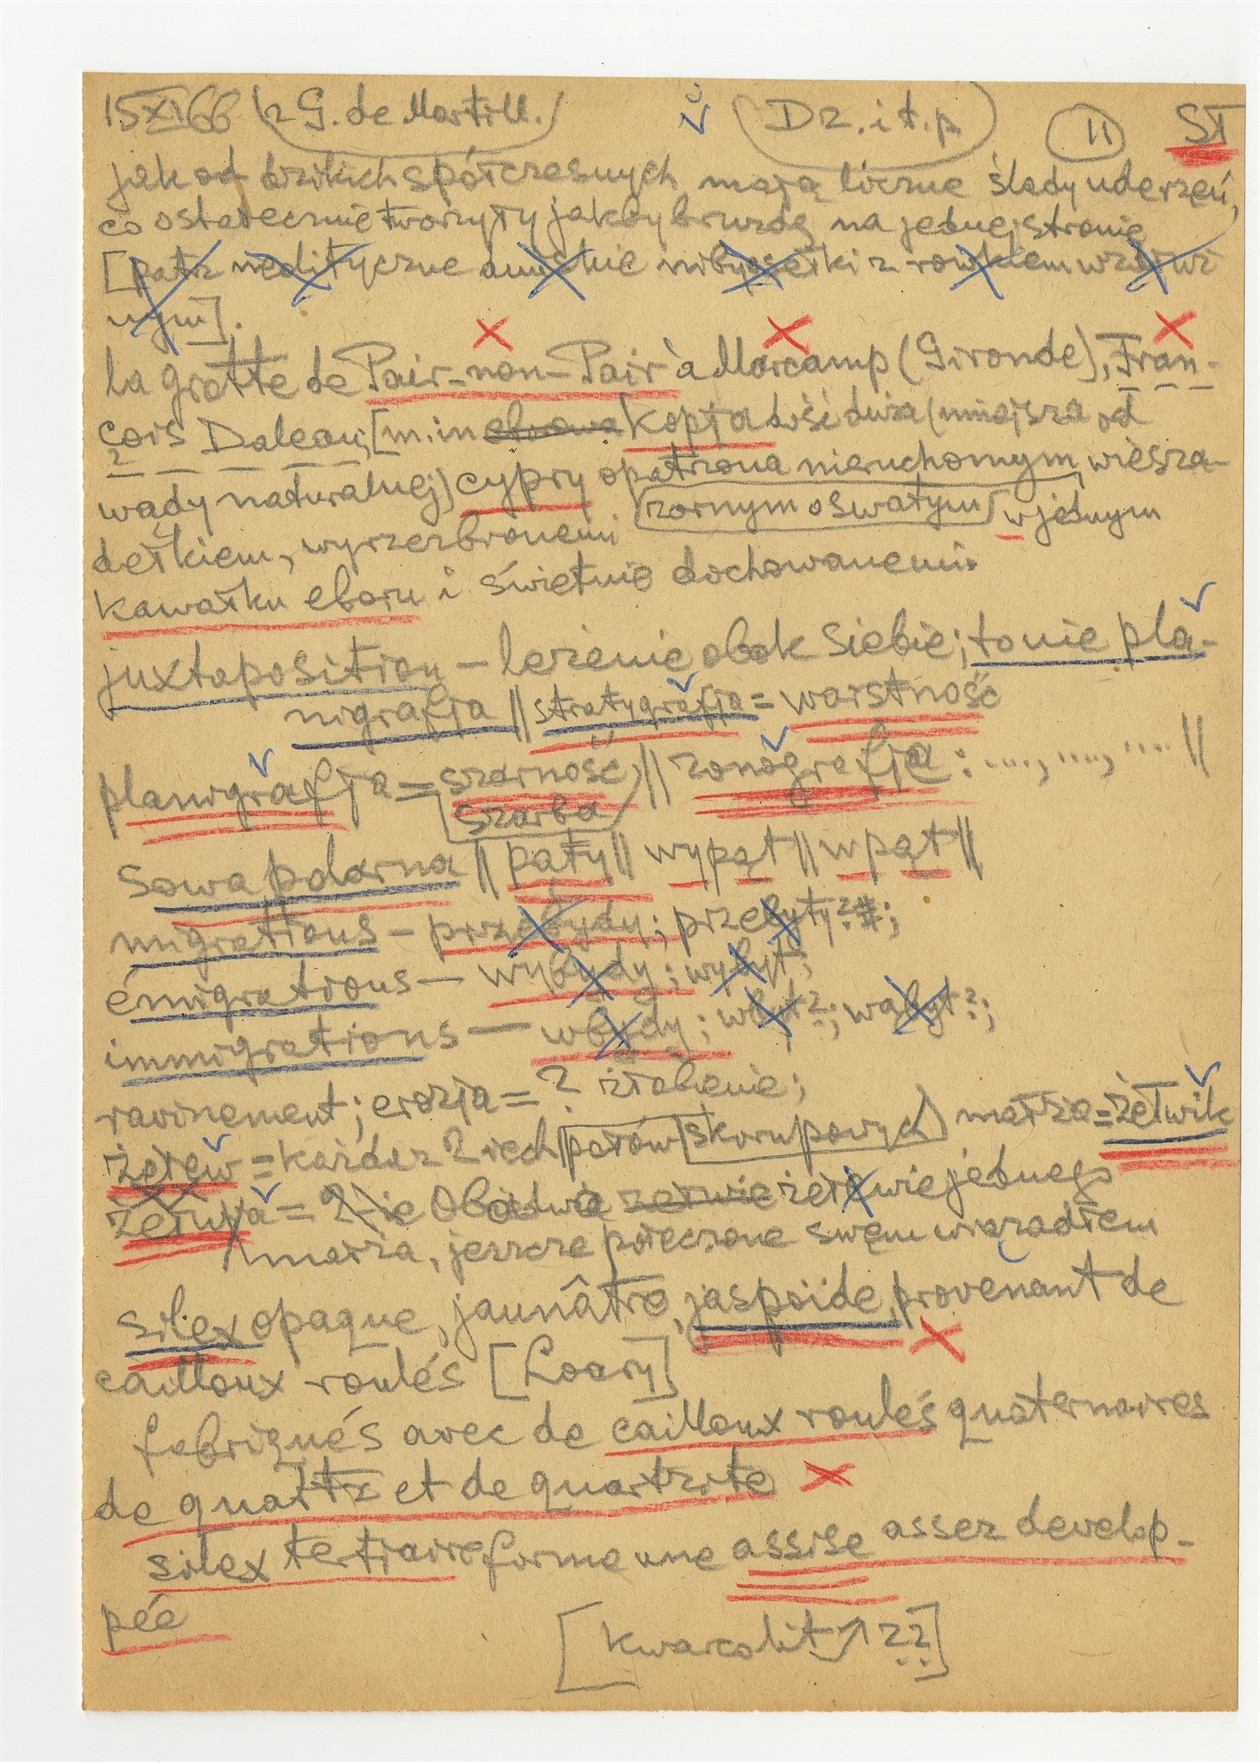 15XI66 (z G. de Mortill.) Dz. i t. p. 11 ST
jak od dzikich spółczesnych, mają liczne ślady uderzeń,
co ostatecznie tworzyły jakby bruzdę na jednej stronie
[patrz neolityczne
nym].
la grotte de Pair-non-Pair à Marcamp (Gironde), Fran-
çois Daleau; [m. in kopja dość duża (mniejsza od
wady naturalnej) cypry opatrzona nieruchomym, wiesza-
dełkiem, wyrzezbionemi zornym oswałym w jednym
kawałku eboru i świetnie dochowanemi.
juxtaposition – leżenie obok siebie; to nie pla-
nigrafja || stratygrafja = warstność
planigrafja = szarność, || zonografja: ...., ...., .... ||
szarba
Sowa polarna || pąty || wypąt || wpąt ||
migrations – przebydy; przebyty?;
émigrations – wybydy; wybyt;
immigrations – wbydy; wbyt?; wąbyt?;
ravinement; erozja = ? żłobienie;
żetew = każda z 2 iech połów skorupowych małża = żetwik
żetwja = 2-ie Obiedwie żetwie jednego
małża, jeszcze połeczone swem wiązadłem
silex opaque, jaunâtre, jaspoïde, provenant de
cailloux roulés
fabriqués avec de cailloux roulés quaternaires
de quartz et de quartzite
silex tertiaire forme une assise assez develop-
pée
[kwarcolit ??]